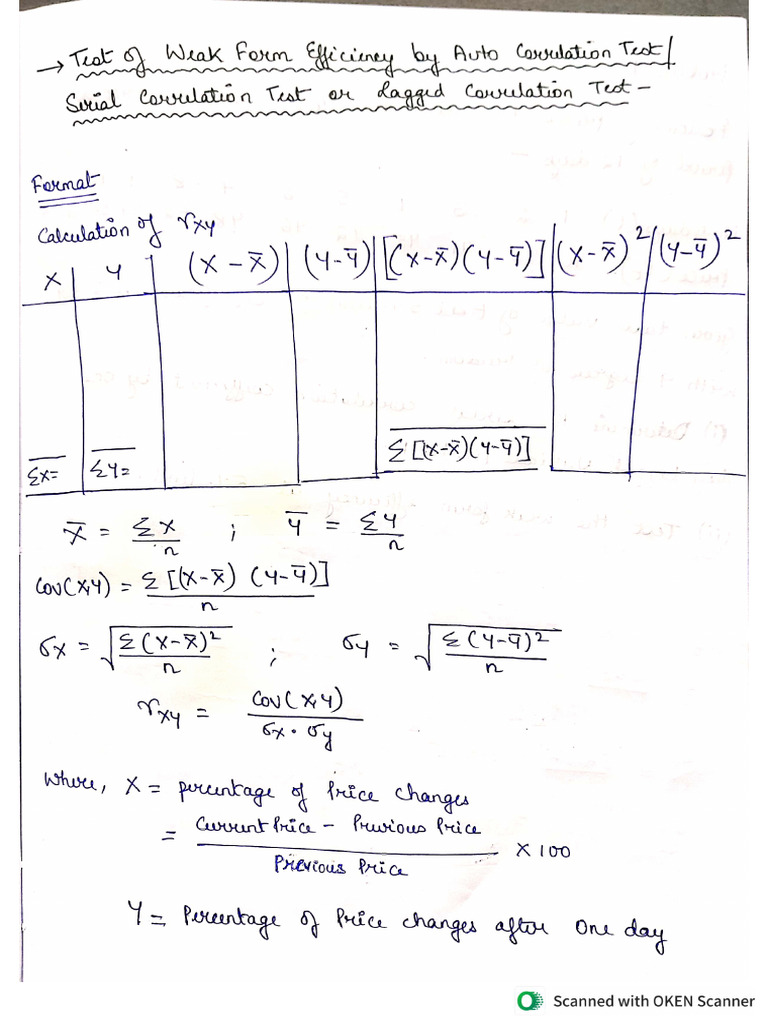 → Test of Weak Form Efficiency by Auto Correlation Test/
Serial Correlation Test or Lagged Correlation Test -
Format
Calculation of rxy
X | Y | (X - X̄) | (Y - Ȳ) | [(X - X̄)(Y - Ȳ)] | (X - X̄)² | (Y - Ȳ)²
Σx= | Σy= | Σ[(X-X̄)(Y-Ȳ)]
X̄ = Σx/n ; Ȳ = Σy/n
Cov(X,Y) = Σ[(X-X̄) (Y-Ȳ)]/n
σx = √(Σ(X-X̄)²/n) ; σy = √(Σ(Y-Ȳ)²/n)
rxy = Cov(X,Y)/σx·σy
Where, X = percentage of Price changes
= Current Price - Previous Price
Previous Price × 100
Y = Percentage of Price changes after one day
Scanned with OKEN Scanner